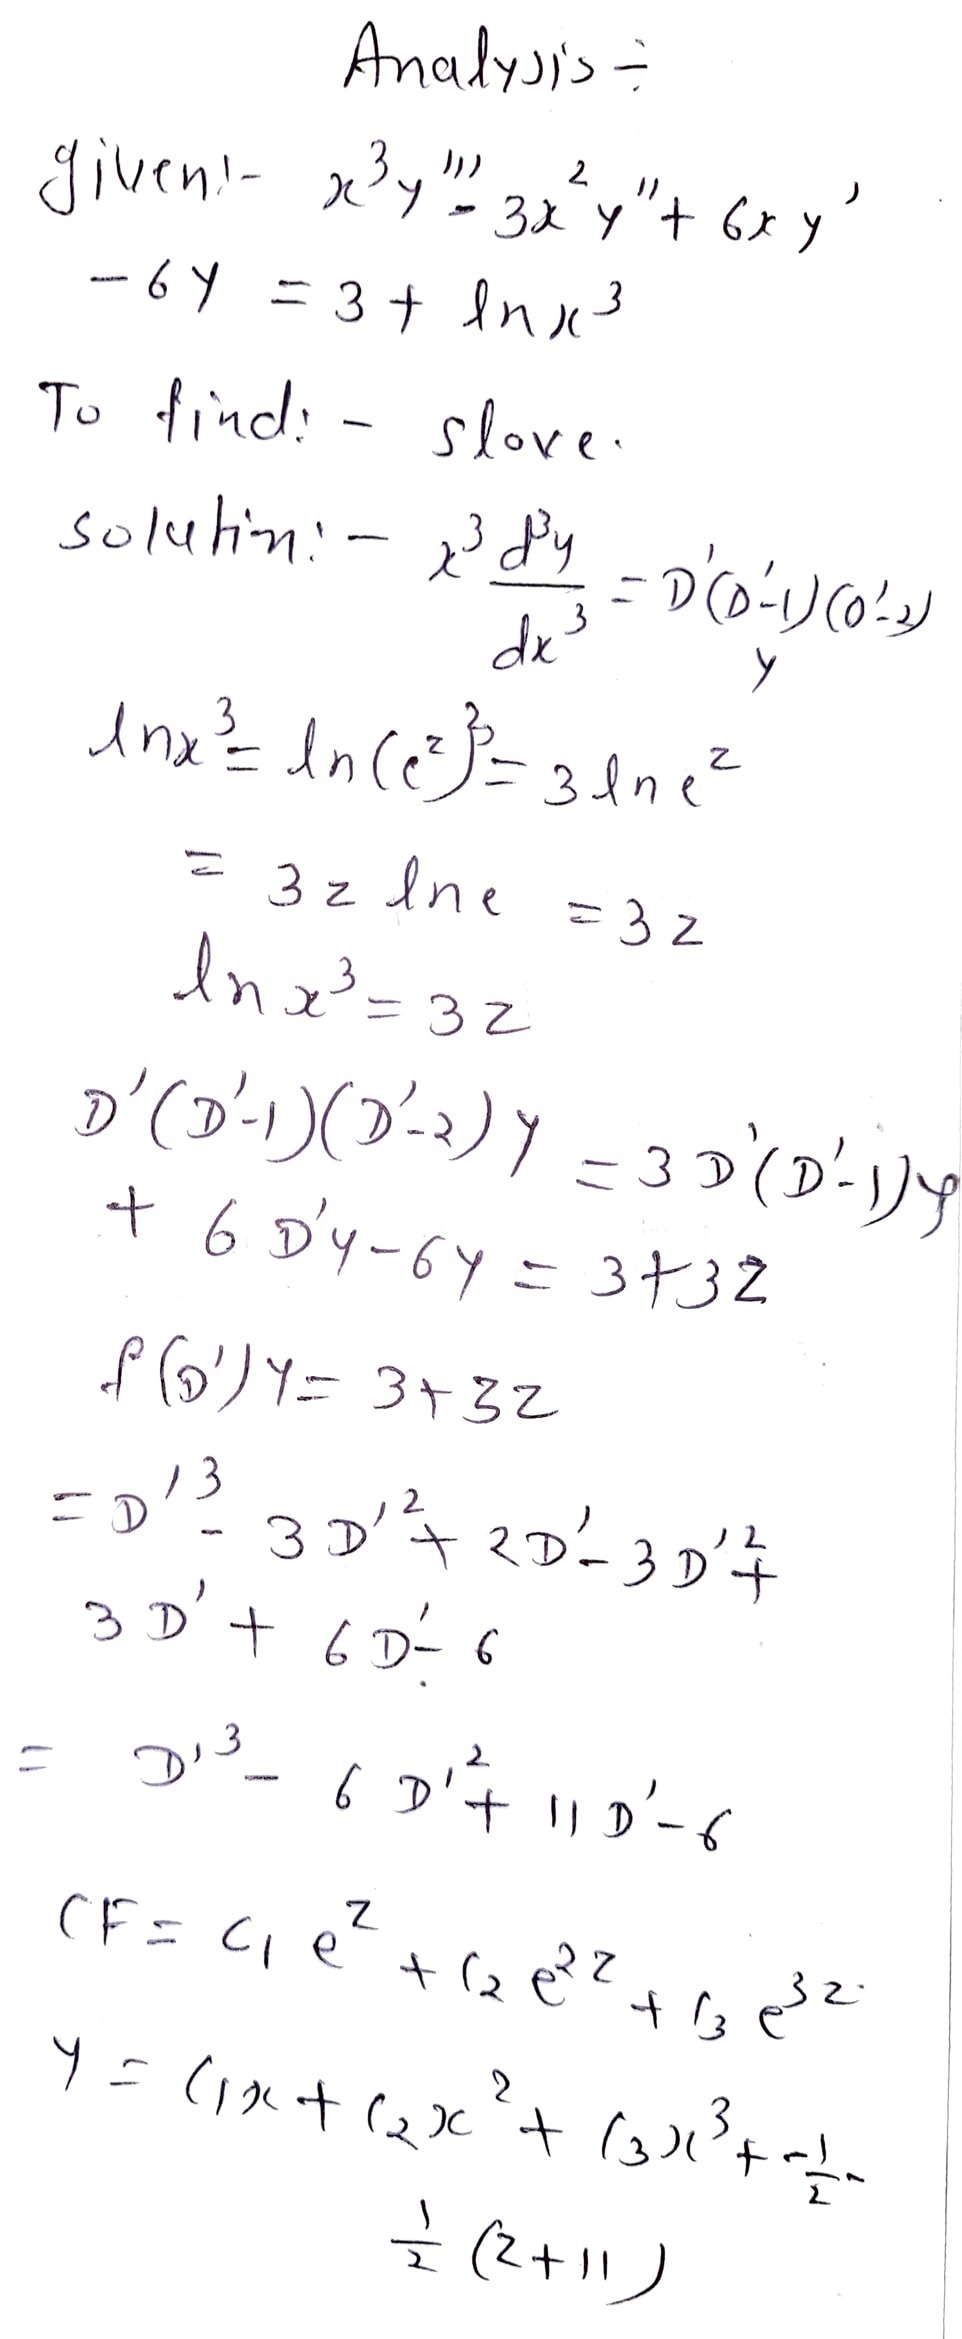 Analysis ÷
given:- x³y''' - 3x²y'' + 6xy'
- 6y = 3 + lnx³
To find: - slove.
solutin: - x³ d³y/dx³ = D'(D'-1)(D'-2)
y
lnx³ = ln(e^z)³ = 3 lne^z
= 3z lne = 3z
lnx³ = 3z
D'(D'-1)(D'-2)y = 3D'(D'-1)y
+ 6D'y - 6y = 3+3z
f(D')y = 3+3z
= D'³ - 3D'² + 2D' - 3D'² +
3D' + 6D' - 6
= D'³ - 6D'² + 11D' - 6
CF = C₁e^z + C₂e^2z + C₃e^3z
y = C₁x + C₂x² + C₃x³ + -1/2 -
1/2 (z+11)